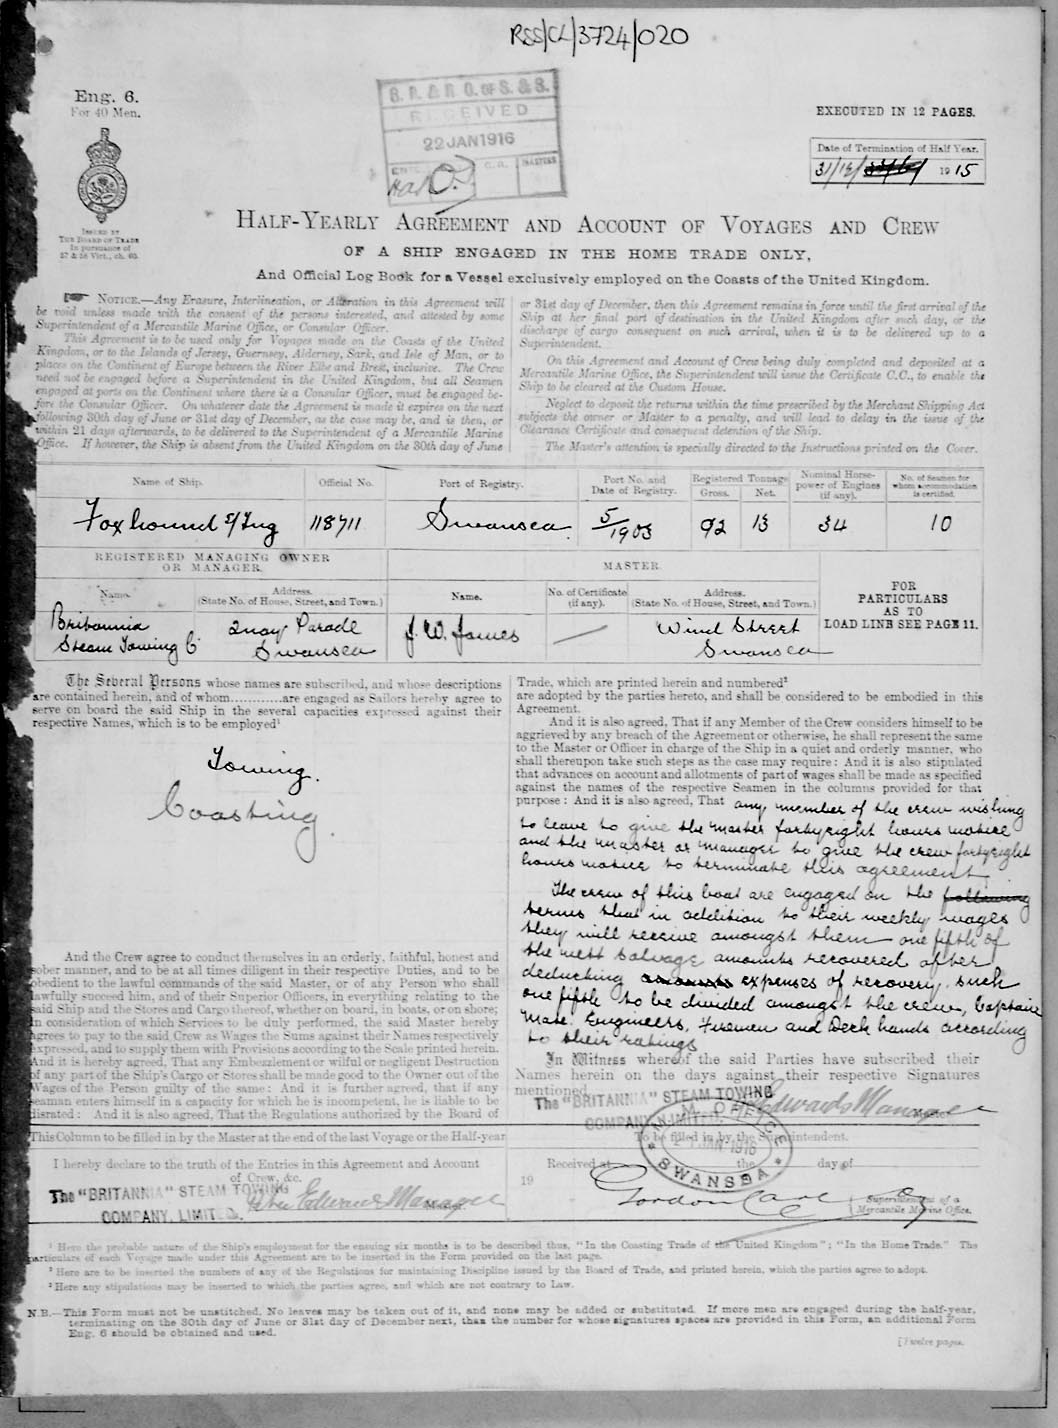 RSS/CL/3724/020
Eng. 6.
For 40 Men.
ISSUED BY
THE BOARD OF TRADE
In pursuance of
57 & 58 Vict., ch. 60.
RECEIVED
22 JAN 1916
EXECUTED IN 12 PAGES.
Date of Termination of Half Year.
31/12/ 1915
HALF-YEARLY AGREEMENT AND ACCOUNT OF VOYAGES AND CREW
OF A SHIP ENGAGED IN THE HOME TRADE ONLY,
And Official Log Book for a Vessel exclusively employed on the Coasts of the United Kingdom.
NOTICE.—Any Erasure, Interlineation, or Alteration in this Agreement will
be void unless made with the consent of the persons interested, and attested by some
Superintendent of a Mercantile Marine Office, or Consular Officer.
This Agreement is to be used only for Voyages made on the Coasts of the United
Kingdom, or to the Islands of Jersey, Guernsey, Alderney, Sark, and Isle of Man, or to
places on the Continent of Europe between the River Elbe and Brest, inclusive. The Crew
need not be engaged before a Superintendent in the United Kingdom, but all Seamen
engaged at ports on the Continent where there is a Consular Officer, must be engaged be-
fore the Consular Officer. On whatever date the Agreement is made it expires on the next
following 30th day of June or 31st day of December, as the case may be, and is then, or
within 21 days afterwards, to be delivered to the Superintendent of a Mercantile Marine
Office. If however, the Ship is absent from the United Kingdom on the 30th day of June
or 31st day of December, then this Agreement remains in force until the first arrival of the
Ship at her final port of destination in the United Kingdom after such day, or the
discharge of cargo consequent on such arrival, when it is to be delivered up to a
Superintendent.
On this Agreement and Account of Crew being duly completed and deposited at a
Mercantile Marine Office, the Superintendent will issue the Certificate C.C., to enable the
Ship to be cleared at the Custom House.
Neglect to deposit the returns within the time prescribed by the Merchant Shipping Act
subjects the owner or Master to a penalty, and will lead to delay in the issue of the
Clearance Certificate and consequent detention of the Ship.
The Master's attention is specially directed to the Instructions printed on the Cover.
Name of Ship. Official No. Port of Registry. Port No. and Date of Registry. Registered Tonnage Gross. Net. Nominal Horse-power of Engines (if any). No. of Seamen for whom accommodation is certified.
Foxhound S/Tug 118711 Swansea 5/1903 92 13 34 10
REGISTERED MANAGING OWNER
OR MANAGER.
MASTER.
Name. Address. (State No. of House, Street, and Town.) Name. No. of Certificate (if any). Address. (State No. of House, Street, and Town.)
FOR
PARTICULARS
AS TO
LOAD LINE SEE PAGE 11.
Britannia Quay Parade J. W. James — Wind Street
Steam Towing Co Swansea Swansea
The Several Persons whose names are subscribed, and whose descriptions
are contained herein, and of whom............are engaged as Sailors hereby agree to
serve on board the said Ship in the several capacities expressed against their
respective Names, which is to be employed¹
Towing.
Coasting
And the Crew agree to conduct themselves in an orderly, faithful, honest and
sober manner, and to be at all times diligent in their respective Duties, and to be
obedient to the lawful commands of the said Master, or of any Person who shall
lawfully succeed him, and of their Superior Officers, in everything relating to the
said Ship and the Stores and Cargo thereof, whether on board, in boats, or on shore;
in consideration of which Services to be duly performed, the said Master hereby
agrees to pay to the said Crew as Wages the Sums against their Names respectively
expressed, and to supply them with Provisions according to the Scale printed herein.
And it is hereby agreed, That any Embezzlement or wilful or negligent Destruction
of any part of the Ship's Cargo or Stores shall be made good to the Owner out of the
Wages of the Person guilty of the same: And it is further agreed, that if any
seaman enters himself in a capacity for which he is incompetent, he is liable to be
disrated: And it is also agreed, That the Regulations authorized by the Board of
Trade, which are printed herein and numbered²
are adopted by the parties hereto, and shall be considered to be embodied in this
Agreement.
And it is also agreed, That if any Member of the Crew considers himself to be
aggrieved by any breach of the Agreement or otherwise, he shall represent the same
to the Master or Officer in charge of the Ship in a quiet and orderly manner, who
shall thereupon take such steps as the case may require: And it is also stipulated
that advances on account and allotments of part of wages shall be made as specified
against the names of the respective Seamen in the columns provided for that
purpose: And it is also agreed, That any member of the crew wishing
to leave to give the master fortyeight hours notice
and the master or manager to give the crew fortyeight
hours notice to terminate this agreement.
The crew of this boat are engaged on the following
terms that in addition to their weekly wages
they will receive amongst them one fifth of
the nett salvage amounts recovered after
deducting expenses of recovery, such
one fifth to be divided amongst the crew, Captain
Mate, Engineers, Firemen and Deck hands according
to their ratings
In Witness whereof the said Parties have subscribed their
Names herein on the days against their respective Signatures
mentioned.
The "BRITANNIA" STEAM TOWING
COMPANY, LIMITED.
Edwards Manager
This Column to be filled in by the Master at the end of the last Voyage or the Half-year
I hereby declare to the truth of the Entries in this Agreement and Account
of Crew, &c.
The "BRITANNIA" STEAM TOWING
COMPANY, LIMITED.
Manager
To be filled in by the Superintendent.
M. M. OFFICE
JAN 1916
SWANSEA
Received at the day of
19
Gordon
Superintendent of a
Mercantile Marine Office.
¹ Here the probable nature of the Ship's employment for the ensuing six months is to be described thus, "In the Coasting Trade of the United Kingdom"; "In the Home Trade." The
particulars of each Voyage made under this Agreement are to be inserted in the Form provided on the last page.
² Here are to be inserted the numbers of any of the Regulations for maintaining Discipline issued by the Board of Trade, and printed herein, which the parties agree to adopt.
³ Here any stipulations may be inserted to which the parties agree, and which are not contrary to Law.
N.B.—This Form must not be unstitched. No leaves may be taken out of it, and none may be added or substituted. If more men are engaged during the half-year,
terminating on the 30th day of June or 31st day of December next, than the number for whose signatures spaces are provided in this Form, an additional Form
Eng. 6 should be obtained and used.
[Twelve pages.